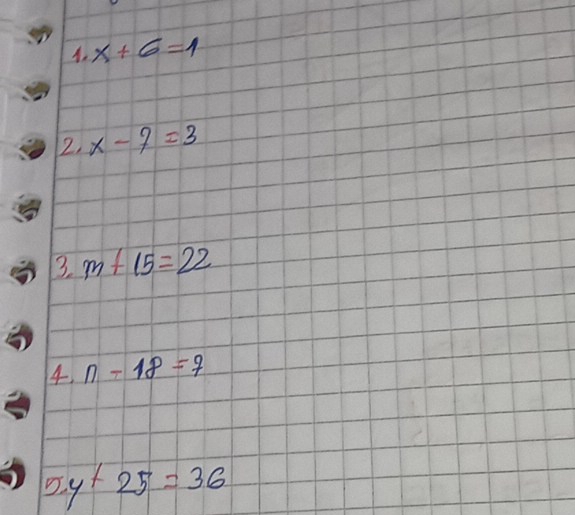 1. x + 6 = 1
2. x - 7 = 3
3. m + 15 = 22
4. n - 18 = 7
5. y + 25 = 36